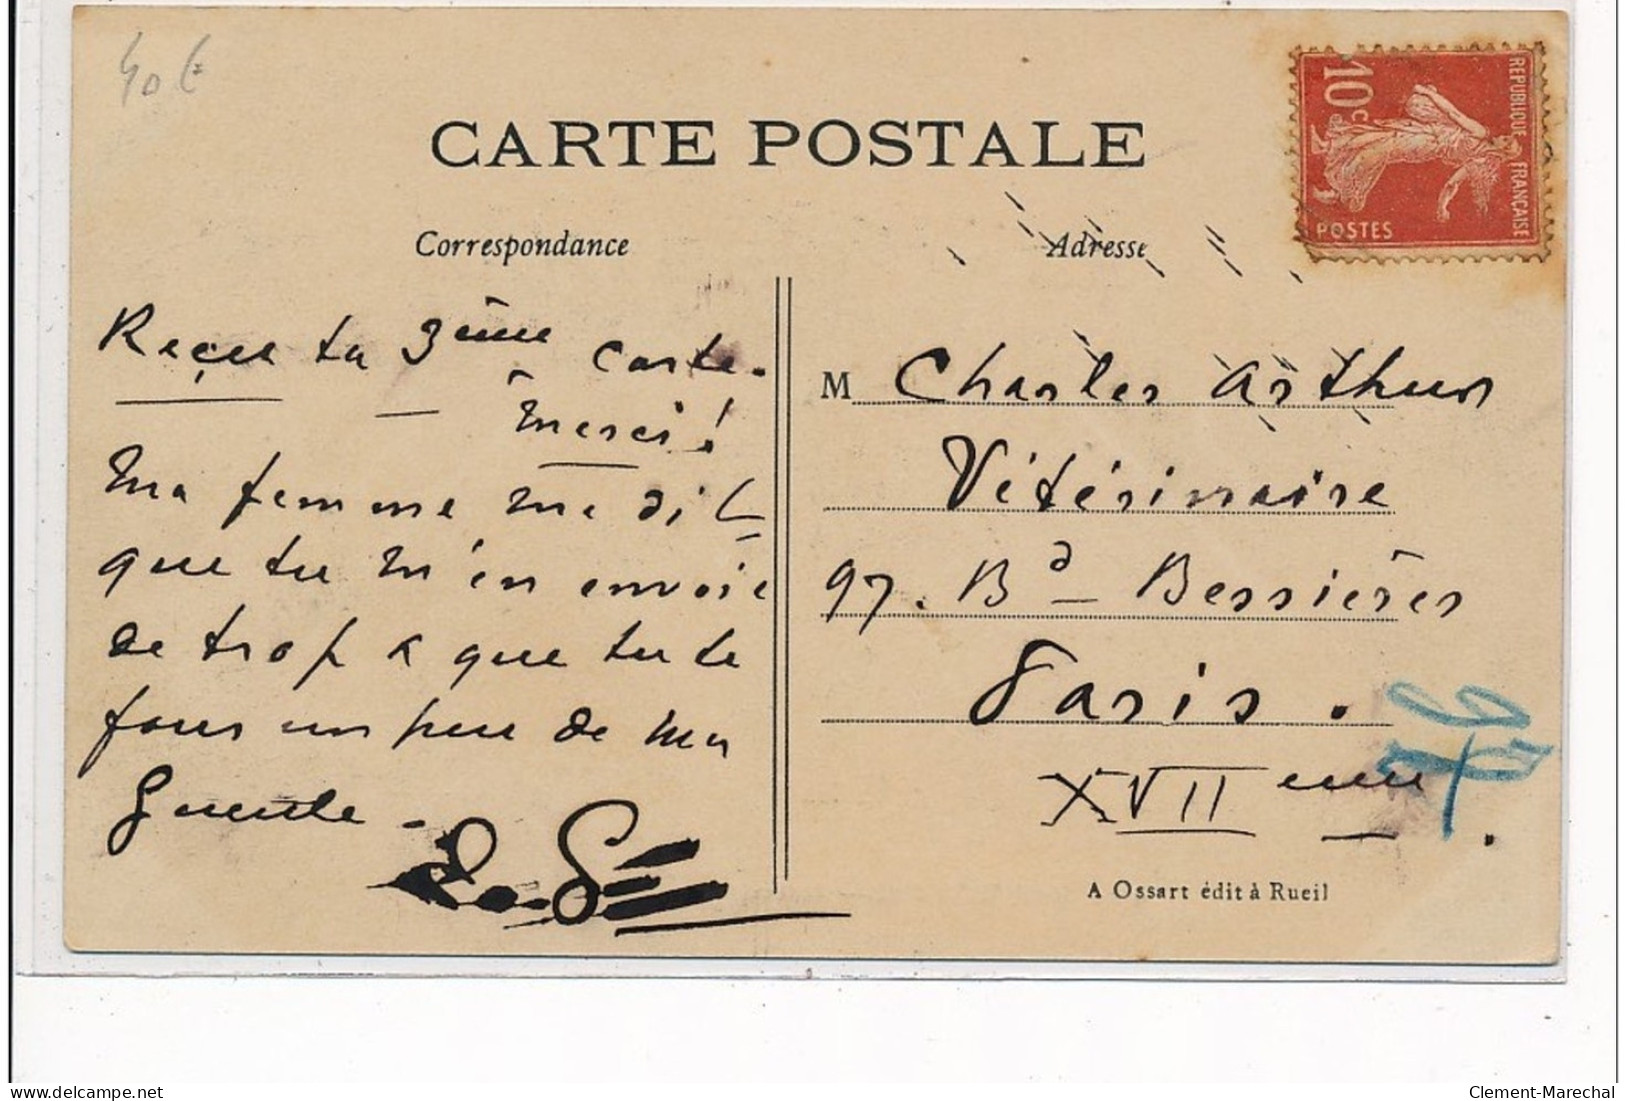 40 €
CARTE POSTALE
REPUBLIQUE FRANÇAISE
10c
POSTES
Correspondance
Reçue ta 3ème carte.
Merci!
Ma femme me dit
que tu m'en envoie
de trop & que tu te
fous un peu de ma
Gueule.
Adresse
M Charles Arthur
Vétérinaire
97. Bd Bessières
Paris.
XVII eme.
A Ossart édit à Rueil
delcampe.net
Clement-Marechal